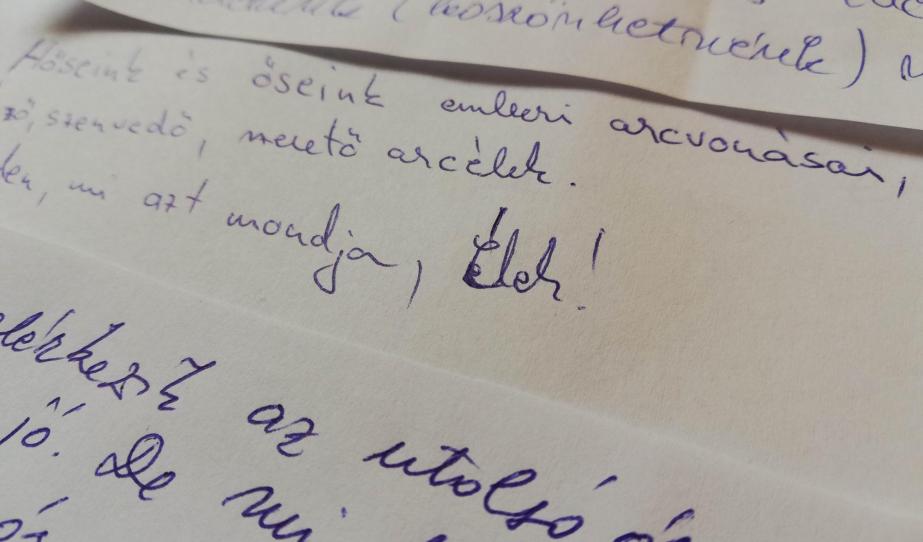 (köszönhetnénk)
Hőseink és őseink emberi arcvonásai,
szenvedő, nevető arcélek.
mi azt mondja, Élek!
elérkezik az utolsó
jő. De mi